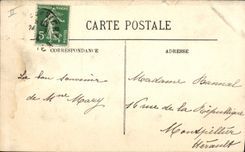 CARTE POSTALE
CORRESPONDANCE
ADRESSE
Le bon souvenir
de Mme Mary
Madame
16 rue de la République
Montpellier
Hérault